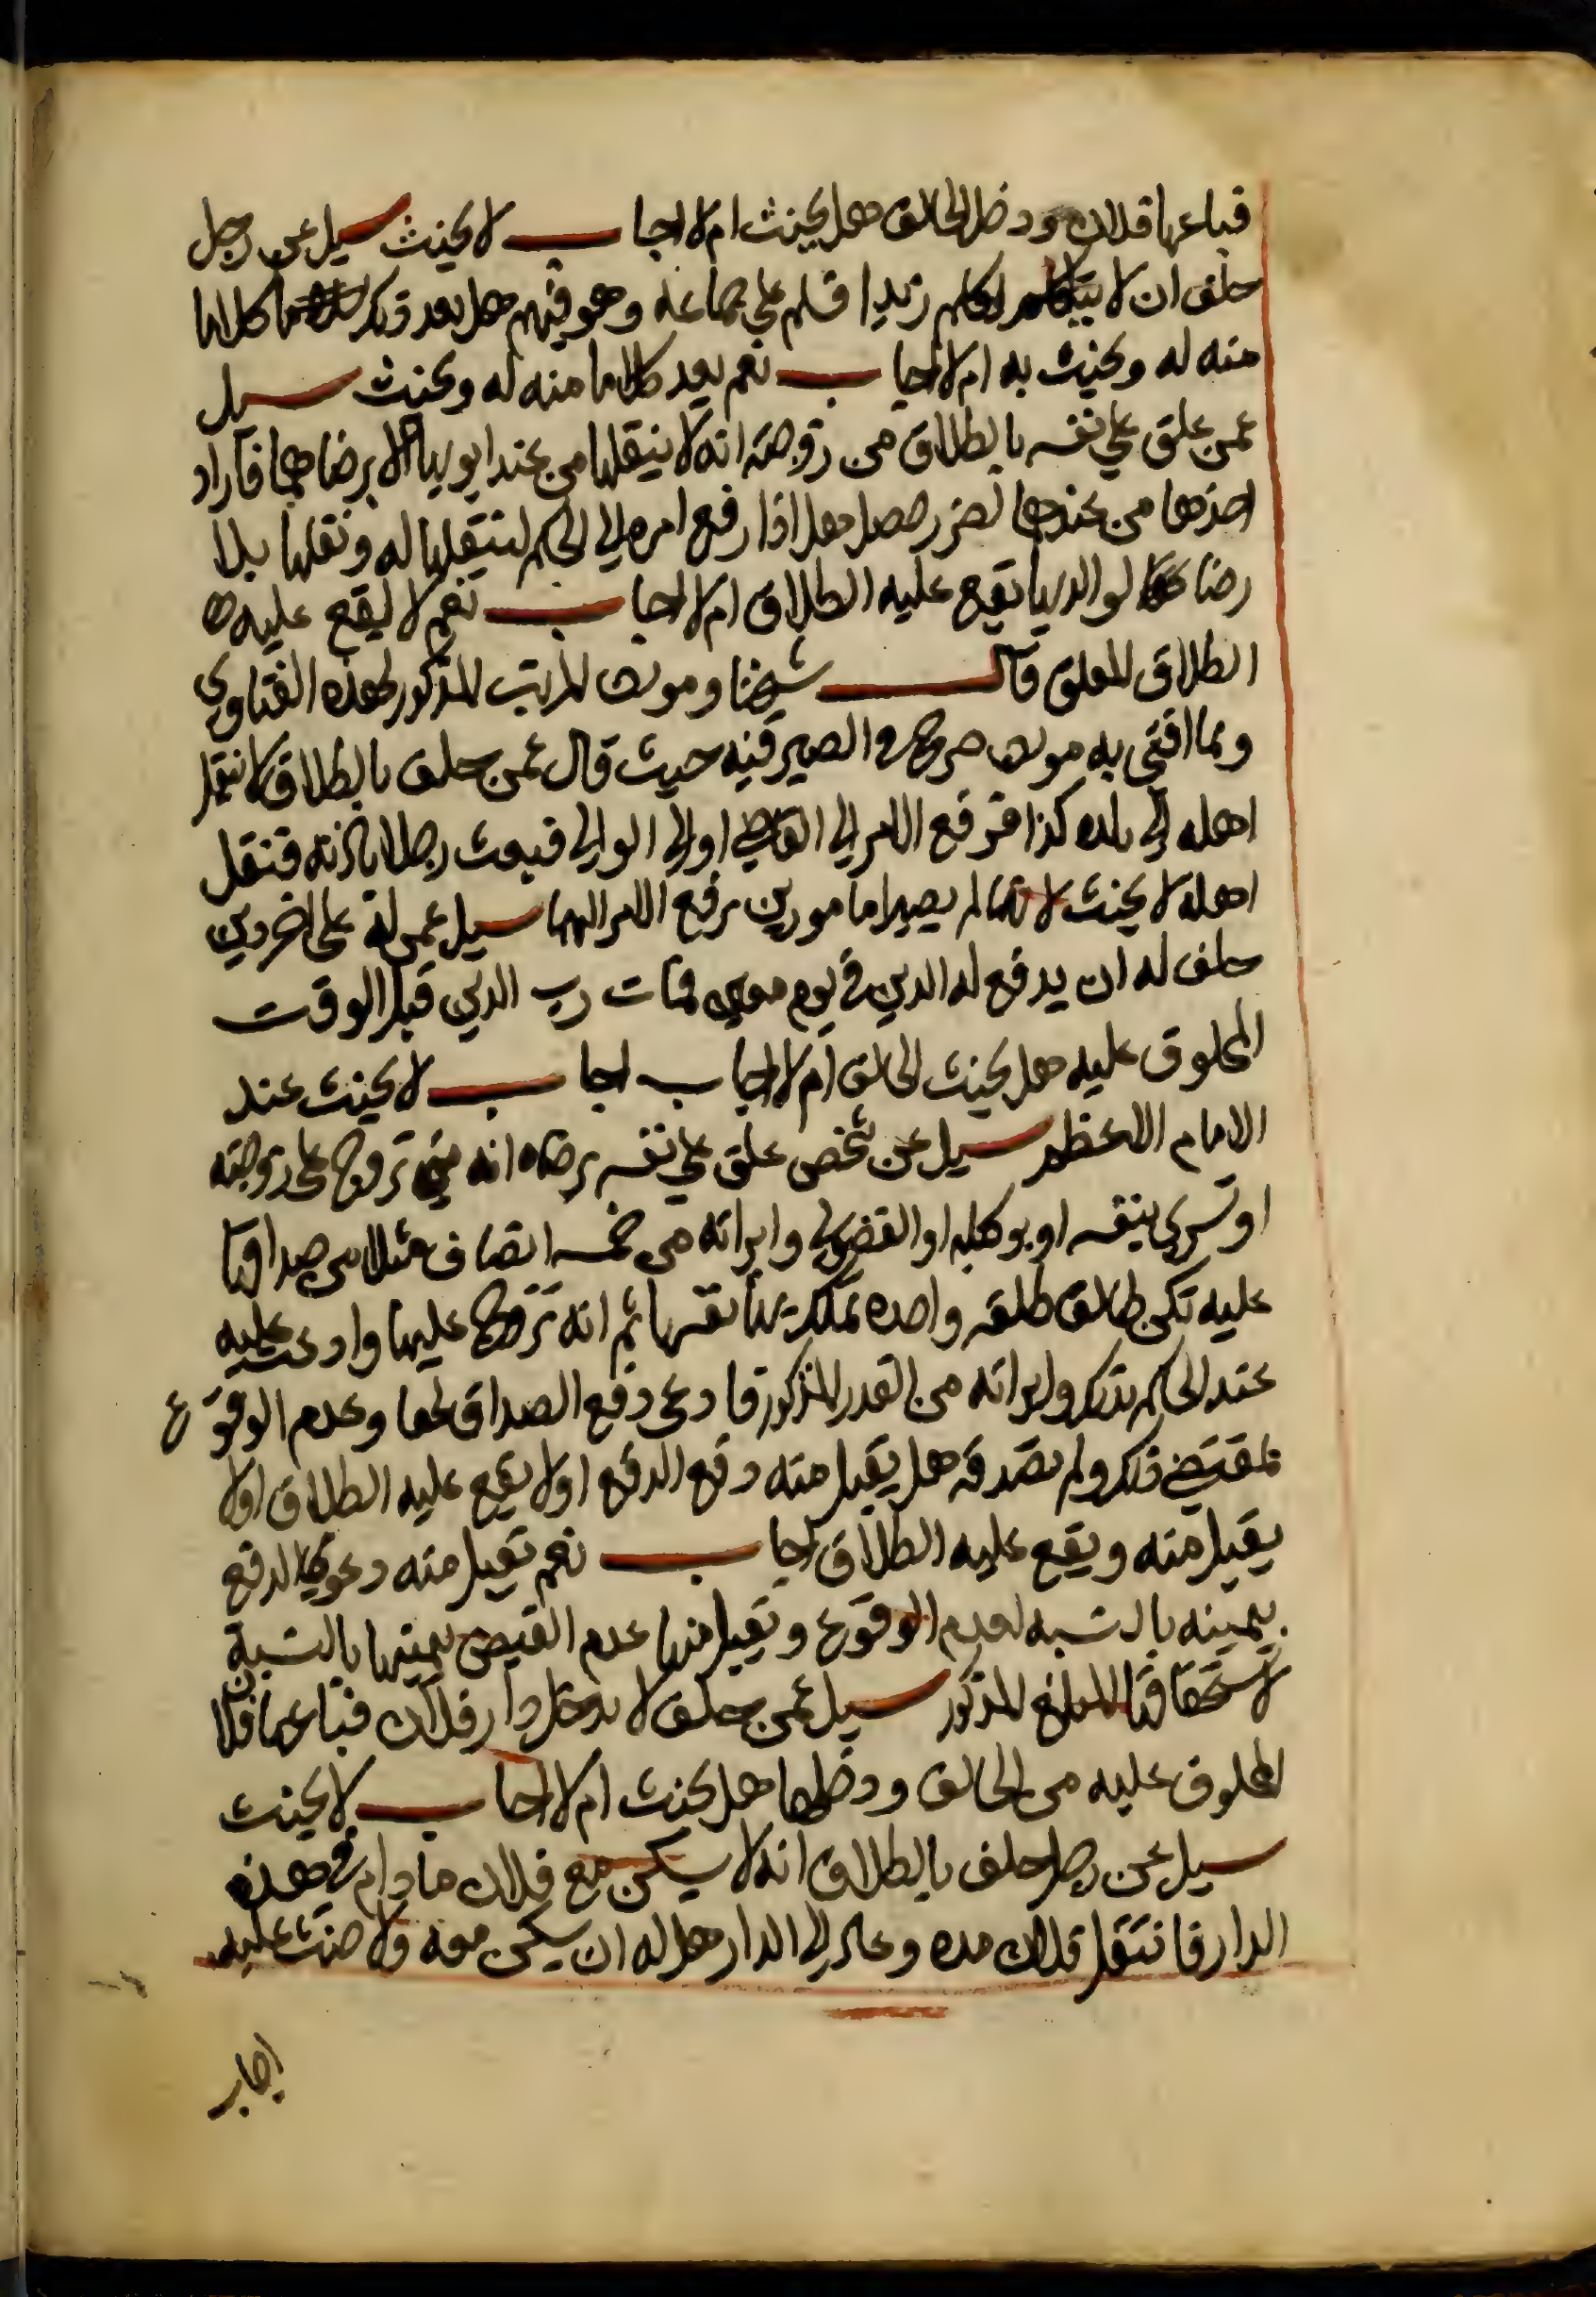 فباعها فلان ودخل الحالف هل يحنث ام لا اجاب لا يحنث سيل عن رجل
حلف ان لا يكلم زيدا فسلم على جماعة وهو فيهم هل يعد ذلك كلاما
منه له ويحنث به ام لا اجاب نعم يعد كلاما منه له ويحنث سيل
عمن علق على نفسه بالطلاق من زوجته انه لا ينقلها من عند ابويها الا برضاهما فاراد
اخذها من عندهما لضرر حصل هل اذا رفع امره الى الحاكم لينقلها له ونقلها بلا
رضا لوالديها يقع عليه الطلاق ام لا اجاب نعم لا يقع عليه
الطلاق المعلق قال شيخنا ومولف المرتب المذكور لهذه الفتاوي
ومما افتى به مولف الصيرفيه حيث قال عمن حلف بالطلاق لا ينقل
اهله الى بلده كذا فرفع الامر الى القاضي او الى الوالي فبعث رجلا باذنه فنقل
اهله لا يحنث لانهما لم يصيرا مامورين برفع الامر اليهما سيل عمن له على اخر دين
حلف له ان يدفع له الدين في يوم معين فمات رب الدين قبل الوقت
المحلوف عليه هل يحنث الحالف ام لا اجاب اجاب لا يحنث عند
الامام الاعظم سيل عن شخص علق على نفسه برضاه انه متى تزوج على زوجته
او تسرى بنفسه او بوكيله او الفضولي وابراته من خمسة انصاف مثلا من صداقها
عليه تكن طالق طلقه واحده تملك بها نفسها ثم انه تزوج عليها وادعت عليه
عند الحاكم بذلك وابراته من القدر المذكور فادعى دفع الصداق لها وعدم الوقوع
بمقتضى ذلك ولم تصدقه هل يقبل منه دفع الدفع اولا يقع عليه الطلاق اولا
يقبل منه ويقع عليه الطلاق اجاب نعم تقبل منه دعوى الدفع
بيمينه بالنسبه لعدم الوقوع وتقبل منها عدم القبض بيمينها بالنسبة
لاستحقاقها المبلغ المذكور سيل عمن حلف لا يدخل دار فلان فباعها فلان
المحلوف عليه من الحالف ودخلها هل يحنث ام لا اجاب لا يحنث
سيل عن رجل حلف بالطلاق انه لا يسكن مع فلان ما دام في هذه
الدار فانتقل فلان مده وعاد الى الدار هل له ان يسكن معه ولا حنث عليه
اجاب